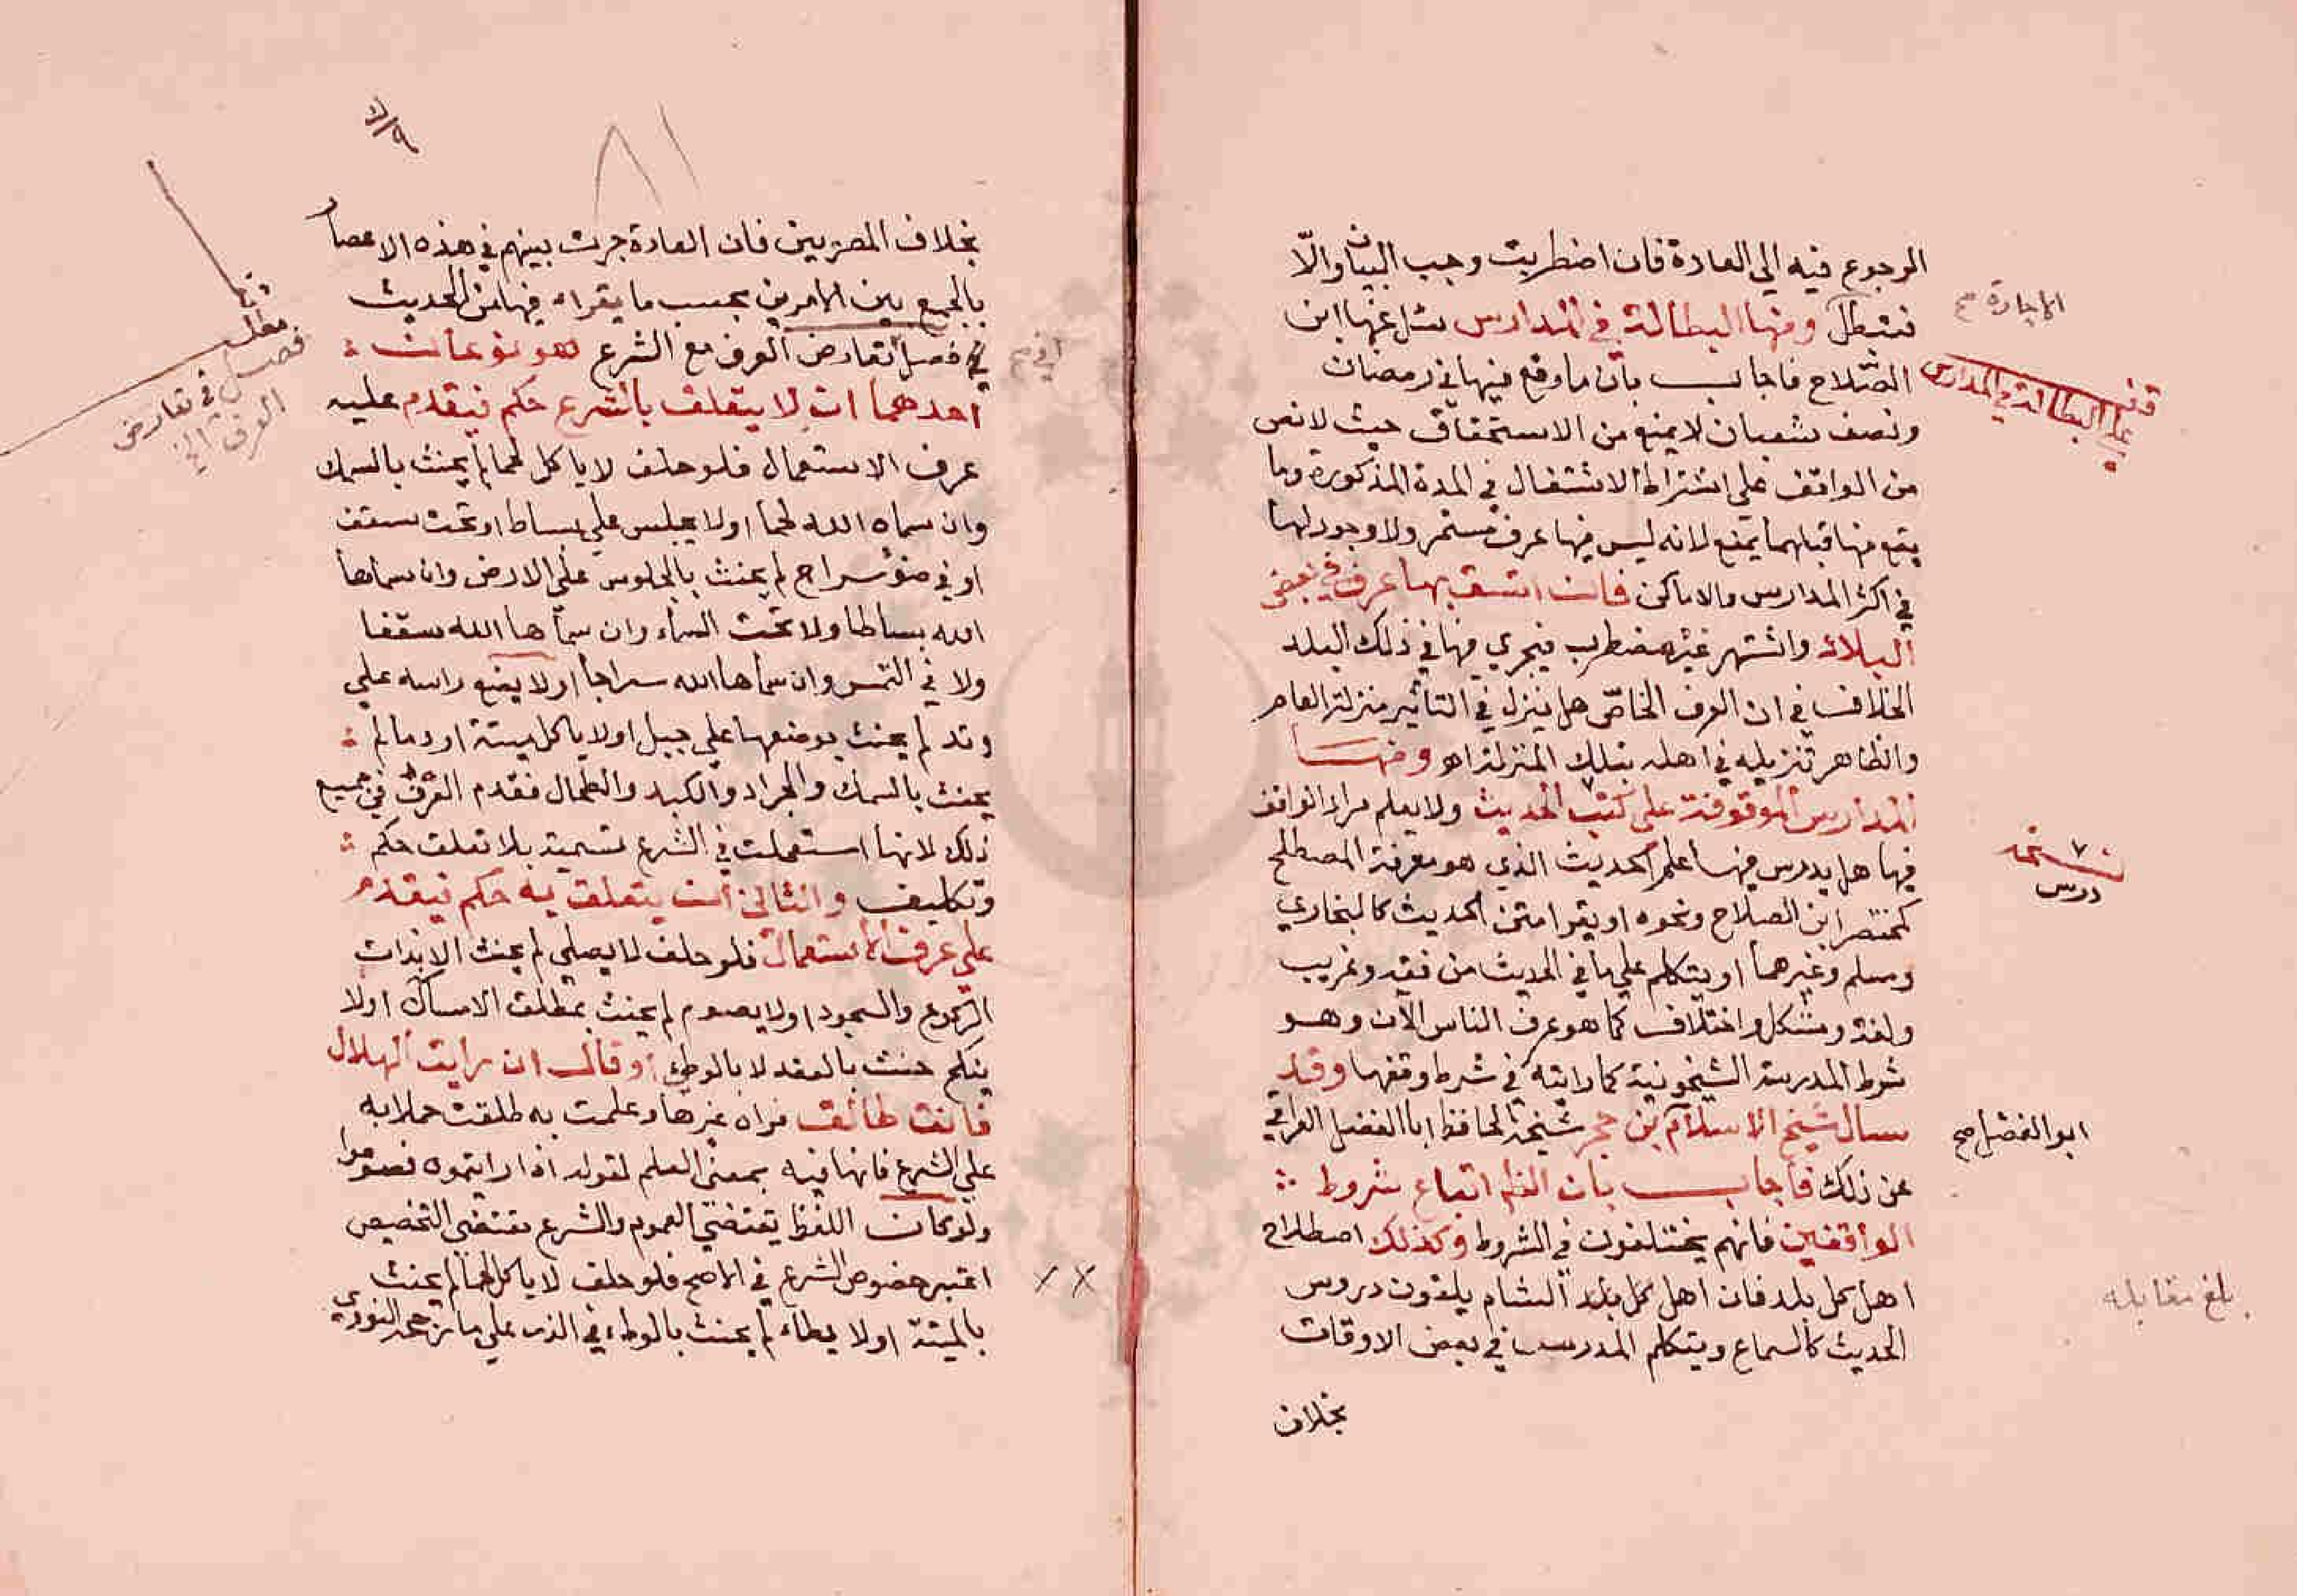 الرجوع فيه الي العادة فان اضطربت وجب البيان والّا
فتبطل ومنها البطالة في المدارس سئل عنها ابن
الصّلاح فاجاب بان ما وقع فيها في رمضان
ونصف شعبان لا يمنع من الاستحقاق حيث لا نص
من الواقف علي اشتراط الاشتغال في المدة المذكورة وما
يقع منها قبلهما يمنع لانه ليس فيها عرف مستمر ولا وجود لها
في اكثر المدارس والاماكن فان اتسق بها عرف في بعض
البلاد واشتهر غير مضطرب فيجري فيها في ذلك البلد
الخلاف في ان العرف الخاصّ هل ينزل في التأثير منزلة العام
والظاهر تنزيله في اهله بتلك المنزلة اه ومنها
المدارس الموقوفة علي كتب الحديث ولا يعلم مراد الواقف
فيها هل يدرس فيها علم الحديث الذي هو معرفة المصطلح
كمختصر ابن الصلاح ونحوه او يقرا متن الحديث كالبخاري
ومسلم وغيرهما او يتكلم علي ما في الحديث من فقه وغريب
ولغة ومشكل واختلاف كما هو عرف الناس الآن وهو
شرط المدرسة الشيخونية كما رايته في شرط وقفها وقد
سال شيخ الاسلام بن حجر شيخه الحافظ ابا الفضل العراقي
عن ذلك فاجاب بان الظ اتباع شروط
الواقفين فانهم يختلفون في الشروط وكذلك اصطلاح
اهل كل بلد فان اهل كل بلد الشام يلقون دروس
الحديث كالسماع ويتكلم المدرس في بعض الاوقات
بخلاف
الاجارة صح
قف علي البطالة في المدارس
نسخه
درس
ابو الفضل صح
بلغ مقابله
٨١
بخلاف المصريين فان العادة جرت بينهم في هذه الاعصار
بالجمع بين الامرين بحسب ما يقراه فيها من الحديث
في فصل تعارض العرف مع الشرع هو نوعان
احدهما ان لا يتعلف بالشرع حكم فيقدم عليه
عرف الاستعمال فلو حلف لا ياكل لحما لم يحنث بالسمك
وان سماه الله لحما او لا يجلس علي بساط او تحت سقف
او في ضوء سراج لم يحنث بالجلوس علي الارض وان سماها
الله بساطا ولا تحت السماء وان سماها الله سقفا
ولا في الشمس وان سماها الله سراجا او لا يضع راسه علي
وتد لم يحنث بوضعها علي جبل او لا ياكل ميتة او دما لم
يحنث بالسمك والجراد والكبد والطحال فقدم العرف في جميع
ذلك لانها استعملت في الشرع تسمية بلا تعلق حكم
وتكليف والثاني ان يتعلق به حكم فيقدم
علي عرف الاستعمال فلو حلف لا يصلي لم يحنث الا بذات
الركوع والسجود او لا يصوم لم يحنث بمطلق الامساك او لا
ينكح حنث بالعقد لا بالوطئ او قال ان رايت الهلال
فانت طالق فراه غيرها وعلمت به طلقت حملا به
علي الشرع فانها فيه بمعني العلم لقوله اذا رايتموه فصوموا
ولو كان اللفظ يقتضي العموم والشرع يقتضي التخصيص
اعتبر خصوص الشرع في الاصح فلو حلف لا ياكل لحما لم يحنث
بالميتة او لا يطاء لم يحنث بالوطء في الدبر علي ما رجحه النووي
مطلب
فصل في تعارض
العرف الخ